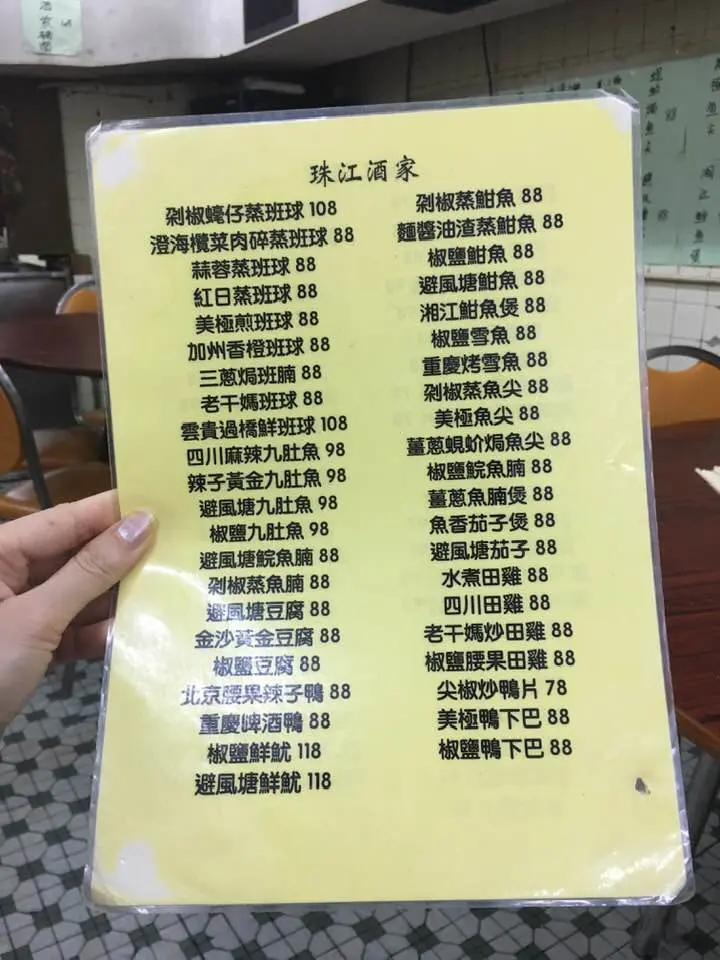 珠江酒家
剁椒蠔仔蒸班球 108
澄海欖菜肉碎蒸班球 88
蒜蓉蒸班球 88
紅日蒸班球 88
美極煎班球 88
加州香橙班球 88
三蔥焗班腩 88
老干媽班球 88
雲貴過橋鮮班球 108
四川麻辣九肚魚 98
辣子黃金九肚魚 98
避風塘九肚魚 98
椒鹽九肚魚 98
避風塘鯇魚腩 88
剁椒蒸魚腩 88
避風塘豆腐 88
金沙黃金豆腐 88
椒鹽豆腐 88
北京腰果辣子鴨 88
重慶啤酒鴨 88
椒鹽鮮魷 118
避風塘鮮魷 118
剁椒蒸魽魚 88
麵醬油渣蒸魽魚 88
椒鹽魽魚 88
避風塘魽魚 88
湘江魽魚煲 88
椒鹽雪魚 88
重慶烤雪魚 88
剁椒蒸魚尖 88
美極魚尖 88
薑蔥蜆蚧焗魚尖 88
椒鹽鯇魚腩 88
薑蔥魚腩煲 88
魚香茄子煲 88
避風塘茄子 88
水煮田雞 88
四川田雞 88
老干媽炒田雞 88
椒鹽腰果田雞 88
尖椒炒鴨片 78
美極鴨下巴 88
椒鹽鴨下巴 88